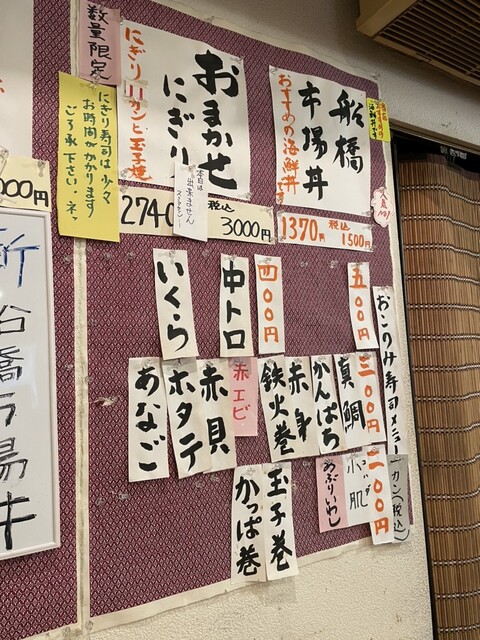 数量限定
おまかせ
にぎり
にぎり11カンと玉子焼
船橋
市場丼
おすすめの海鮮丼です
海鮮丼です
にぎり寿司は少々
お時間がかかります
ご了承下さい・ネッ
本日は
出来ません
274
税込
3000円
1370円
税込
1500円
000円
おこのみ寿司メニュー
五〇〇円
四〇〇円
中トロ
いくら
三〇〇円
真鯛
かんぱち
赤身
鉄火巻
赤エビ
赤貝
ホタテ
あなご
カン(税込)
二〇〇円
コハダ
小肌
あぶりいわし
玉子巻
かっぱ巻